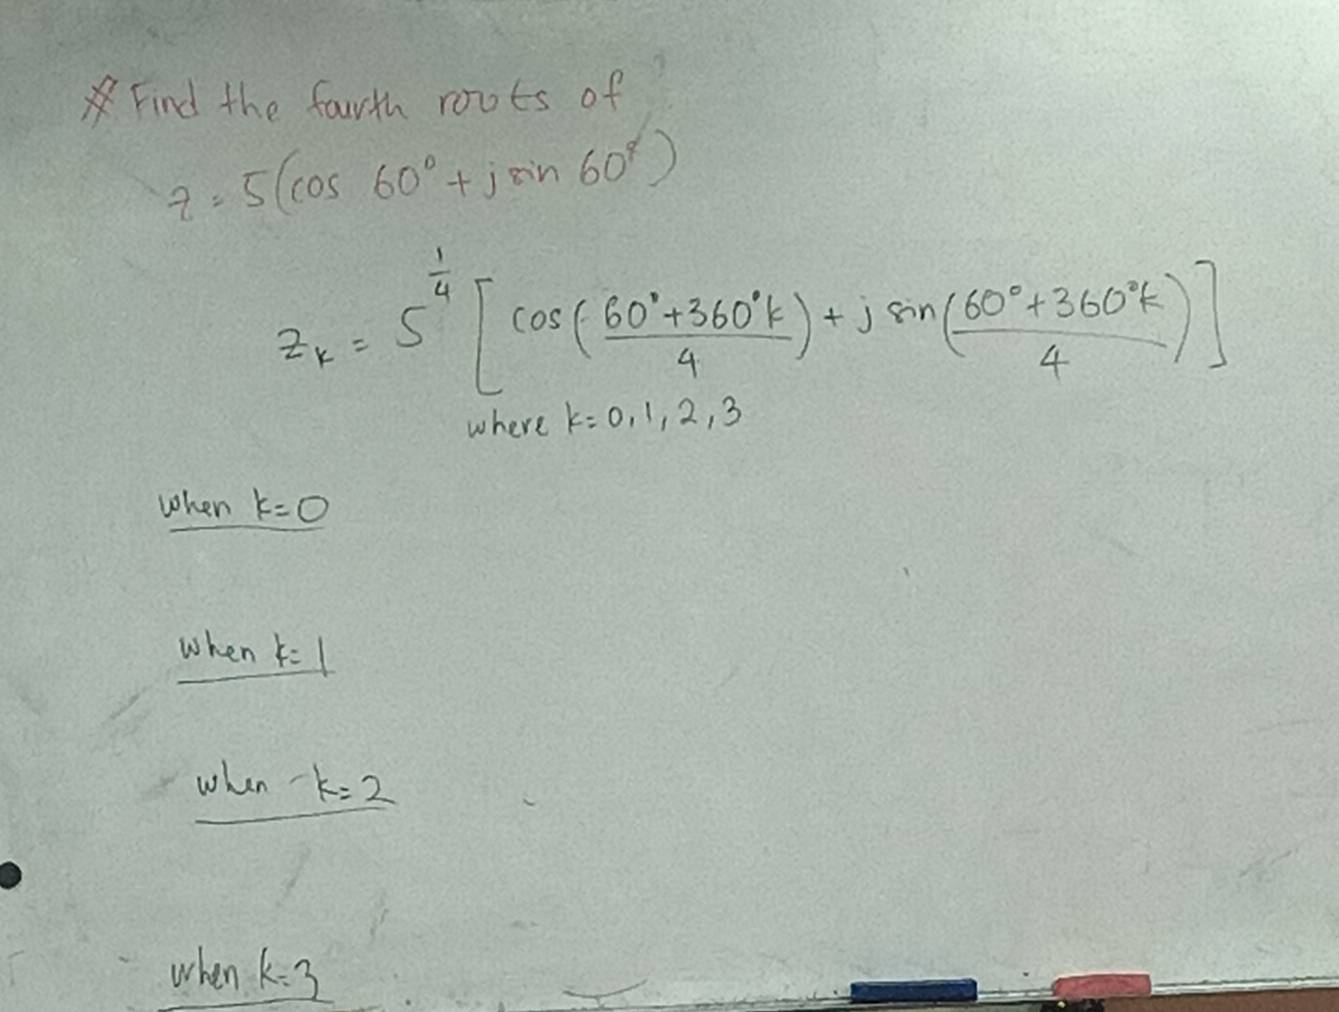 # Find the fourth roots of
z = 5(cos 60° + j sin 60°)
z_k = 5^{1/4} [cos((60°+360°k)/4) + j sin((60°+360°k)/4)]
where k = 0, 1, 2, 3
when k=0
when k=1
when k=2
when k=3